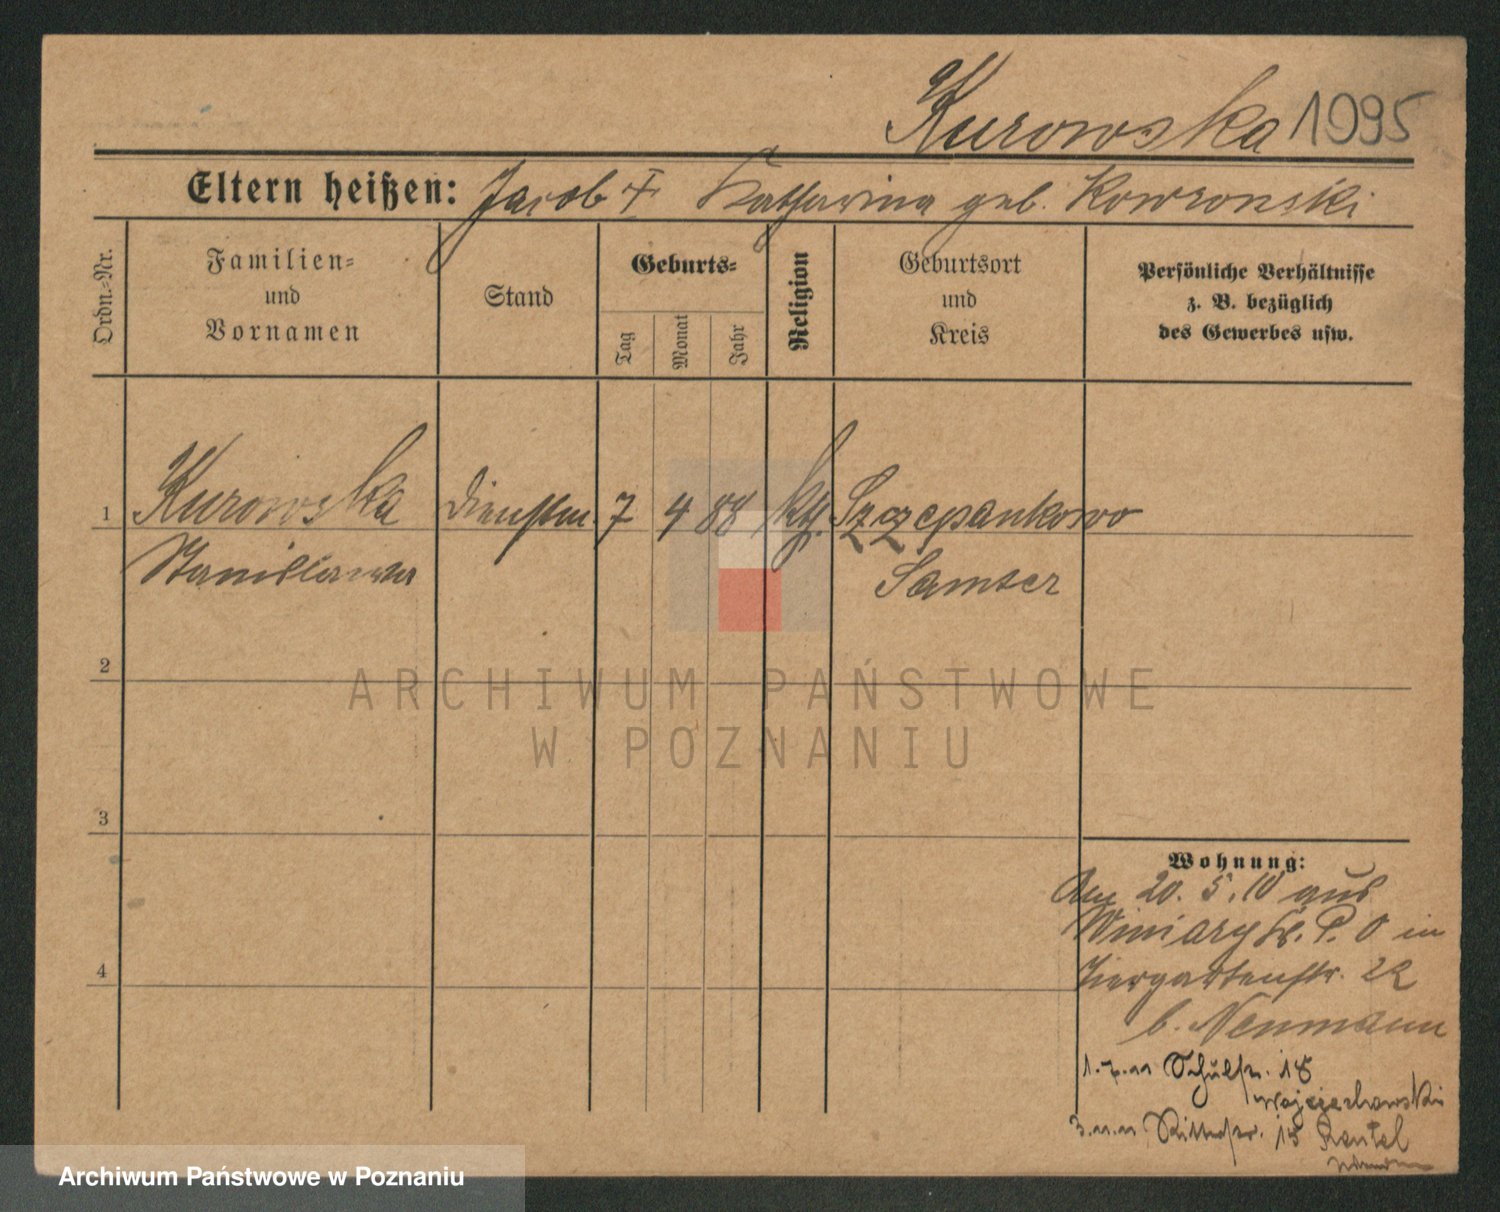 Kurowska 1995
Eltern heißen: Jacob † Katharina geb. Kowronski
Ordn.-Nr.
Familien-
und
Vornamen
Stand
Geburts-
Tag
Monat
Jahr
Religion
Geburtsort
und
Kreis
Persönliche Verhältnisse
z. B. bezüglich
des Gewerbes usw.
1 Kurowska Dienstm. 7 4 88 kth. Szczepankowo
Stanislawa Samter
2
ARCHIWUM PAŃSTWOWE
W POZNANIU
3
Wohnung:
Am 20. 5. 10 aus
Winiary Kr. P. O in
Tiergartenstr. 22
b. Neumann
1.7.11 Schulstr. 18
Wojciechowski
3.11.11 Ritterstr. 15
4
Archiwum Państwowe w Poznaniu